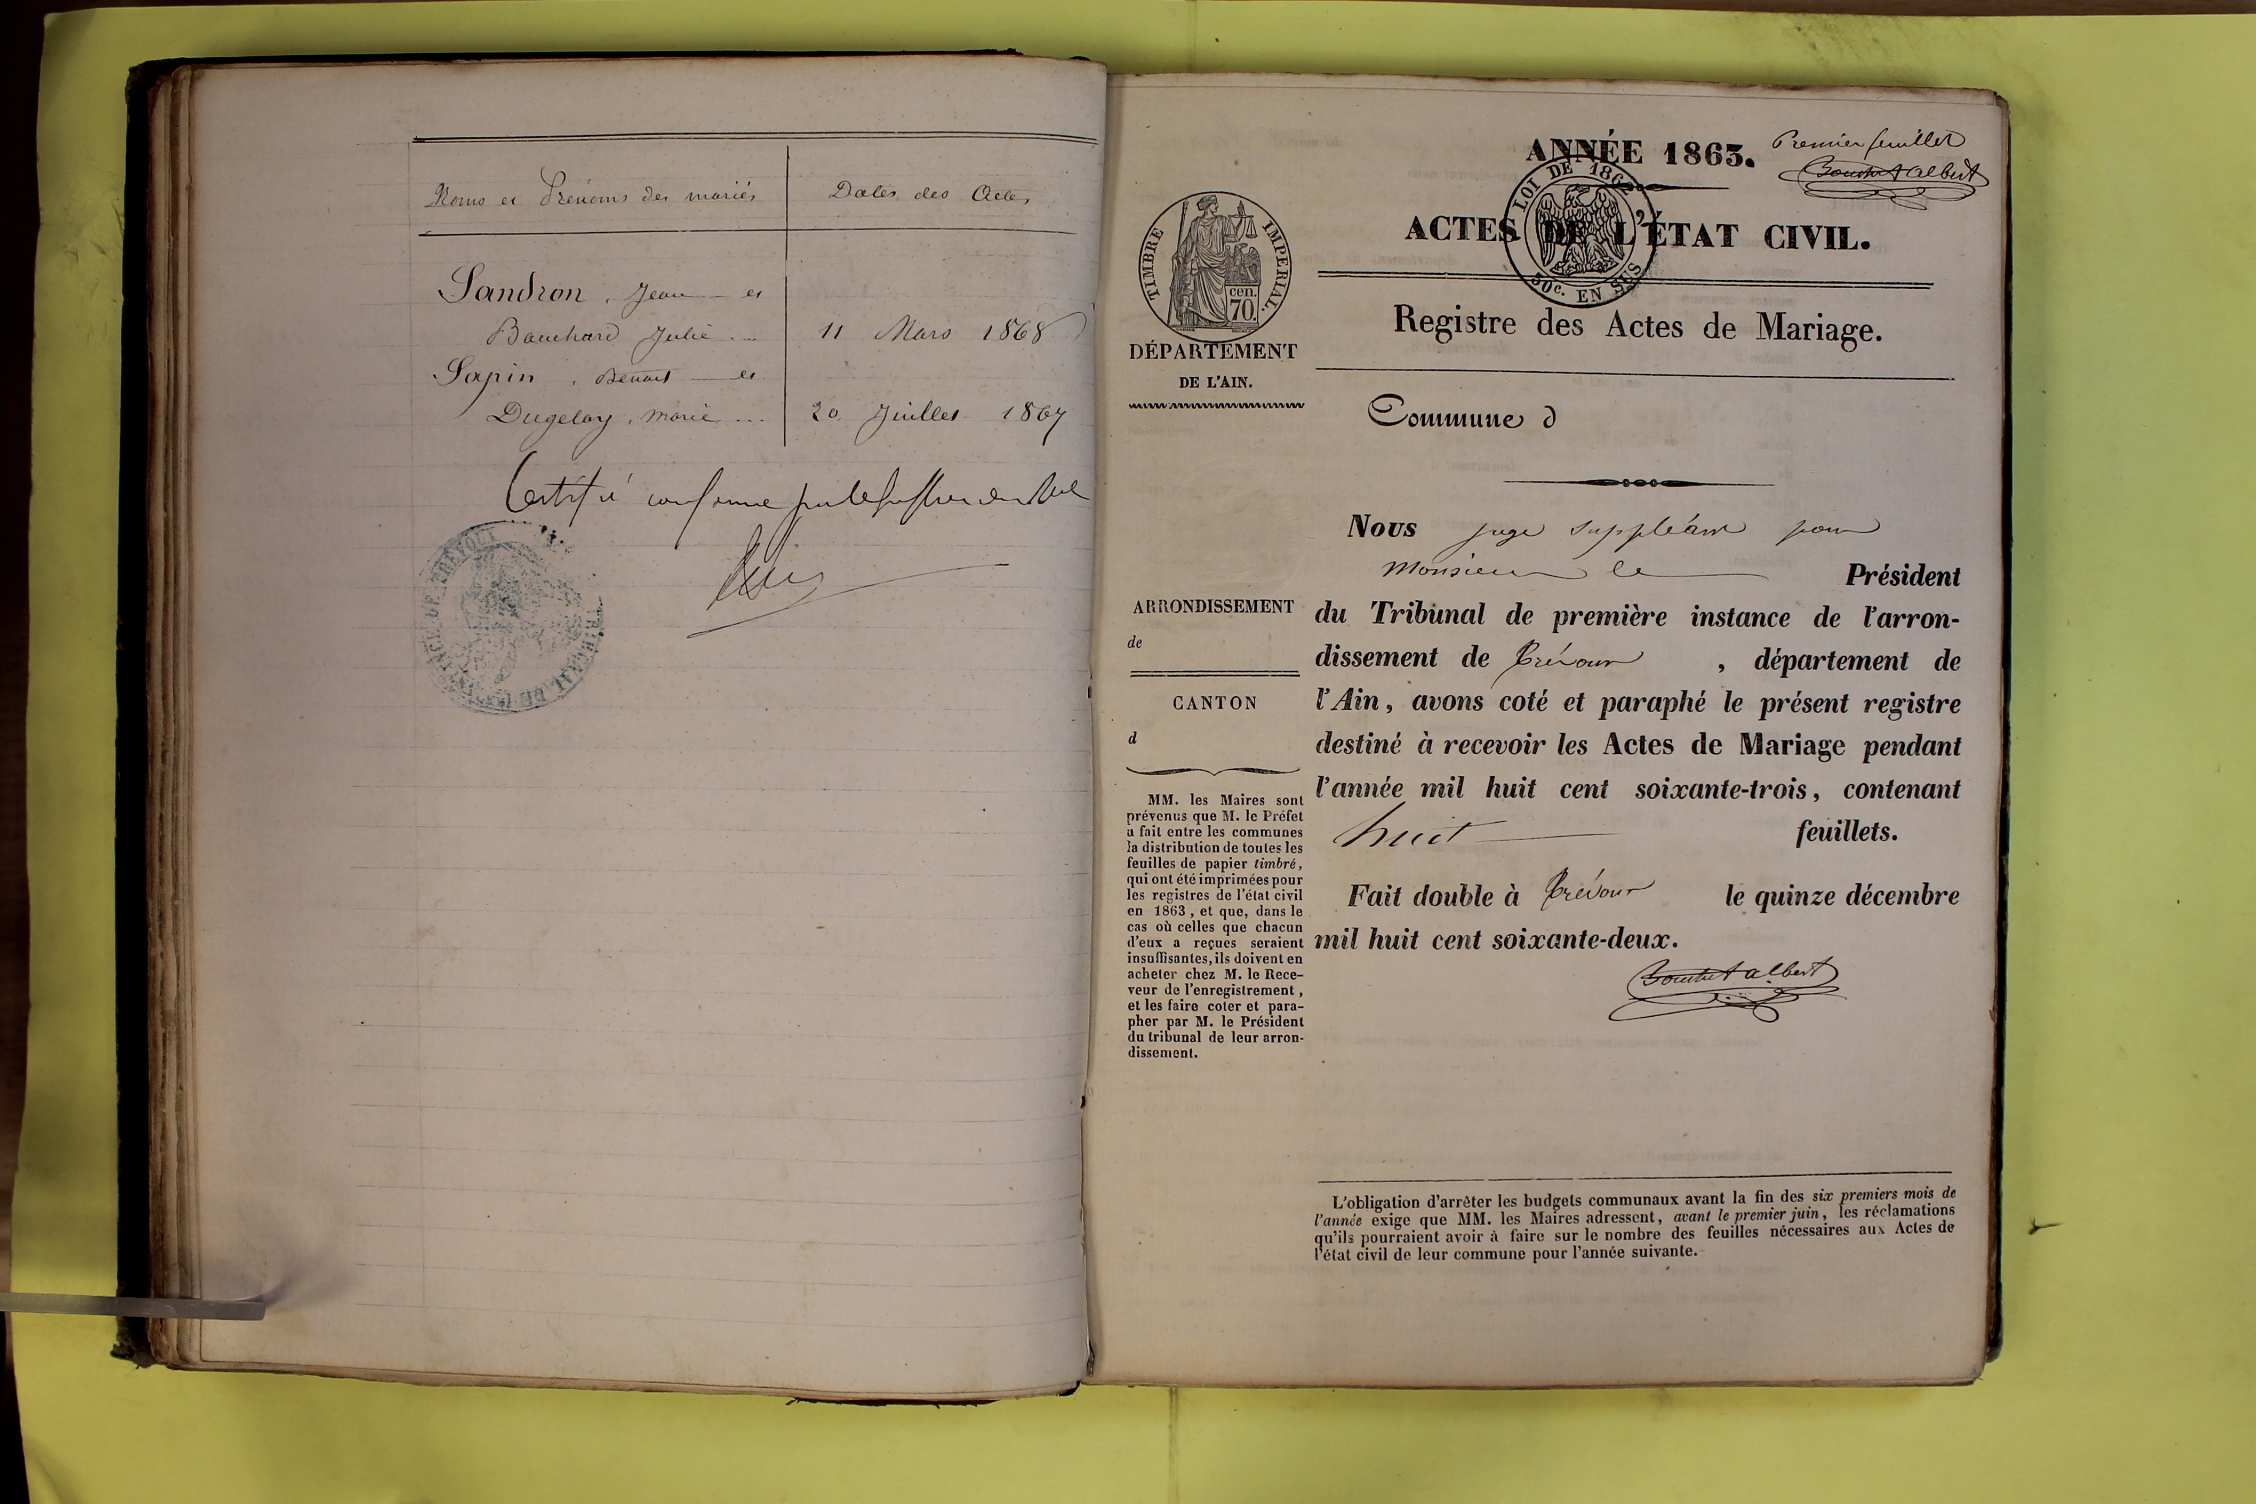 Noms et Prénoms des mariés
Dates des Actes
Sandron, Jean et
Bauchard Julie ... 11 Mars 1868
Sapin, Benoit et
Dugelay, Marie ... 20 Juillet 1867
Certifié conforme par le Greffier
TRIBUNAL DE INSTANCE DE TRÉVOUX
ANNÉE 1863.
Premier feuillet
Albert
LOI DE 1862
50c. EN SUS
TIMBRE IMPERIAL.
cen.
70.
ACTES DE L'ÉTAT CIVIL.
Registre des Actes de Mariage.
DÉPARTEMENT
DE L'AIN.
Commune d
Nous juge suppléant pour
Monsieur le Président
du Tribunal de première instance de l'arron-
dissement de Trévoux , département de
l'Ain, avons coté et paraphé le présent registre
destiné à recevoir les Actes de Mariage pendant
l'année mil huit cent soixante-trois, contenant
huit feuillets.
Fait double à Trévoux le quinze décembre
mil huit cent soixante-deux.
Albert
ARRONDISSEMENT
de
CANTON
d
MM. les Maires sont
prévenus que M. le Préfet
a fait entre les communes
la distribution de toutes les
feuilles de papier timbré,
qui ont été imprimées pour
les registres de l'état civil
en 1863, et que, dans le
cas où celles que chacun
d'eux a reçues seraient
insuffisantes, ils doivent en
acheter chez M. le Rece-
veur de l'enregistrement,
et les faire coter et para-
pher par M. le Président
du tribunal de leur arron-
dissement.
L'obligation d'arrêter les budgets communaux avant la fin des six premiers mois de
l'année exige que MM. les Maires adressent, avant le premier juin, les réclamations
qu'ils pourraient avoir à faire sur le nombre des feuilles nécessaires aux Actes de
l'état civil de leur commune pour l'année suivante.